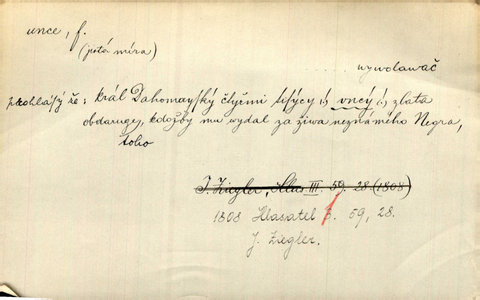 unce, f.
(jistá míra)
wywolawač
prohlásý že: král Dahomayský čtyřmi tisýcy (!) vncý (!) zlata
obdaruge, kdožby mu wydal za žiwa neznámého Negra,
toho
J. Ziegler, Hlas III. 59. 28. (1808)
1808 Hlasatel 3. 59, 28.
J. Ziegler.